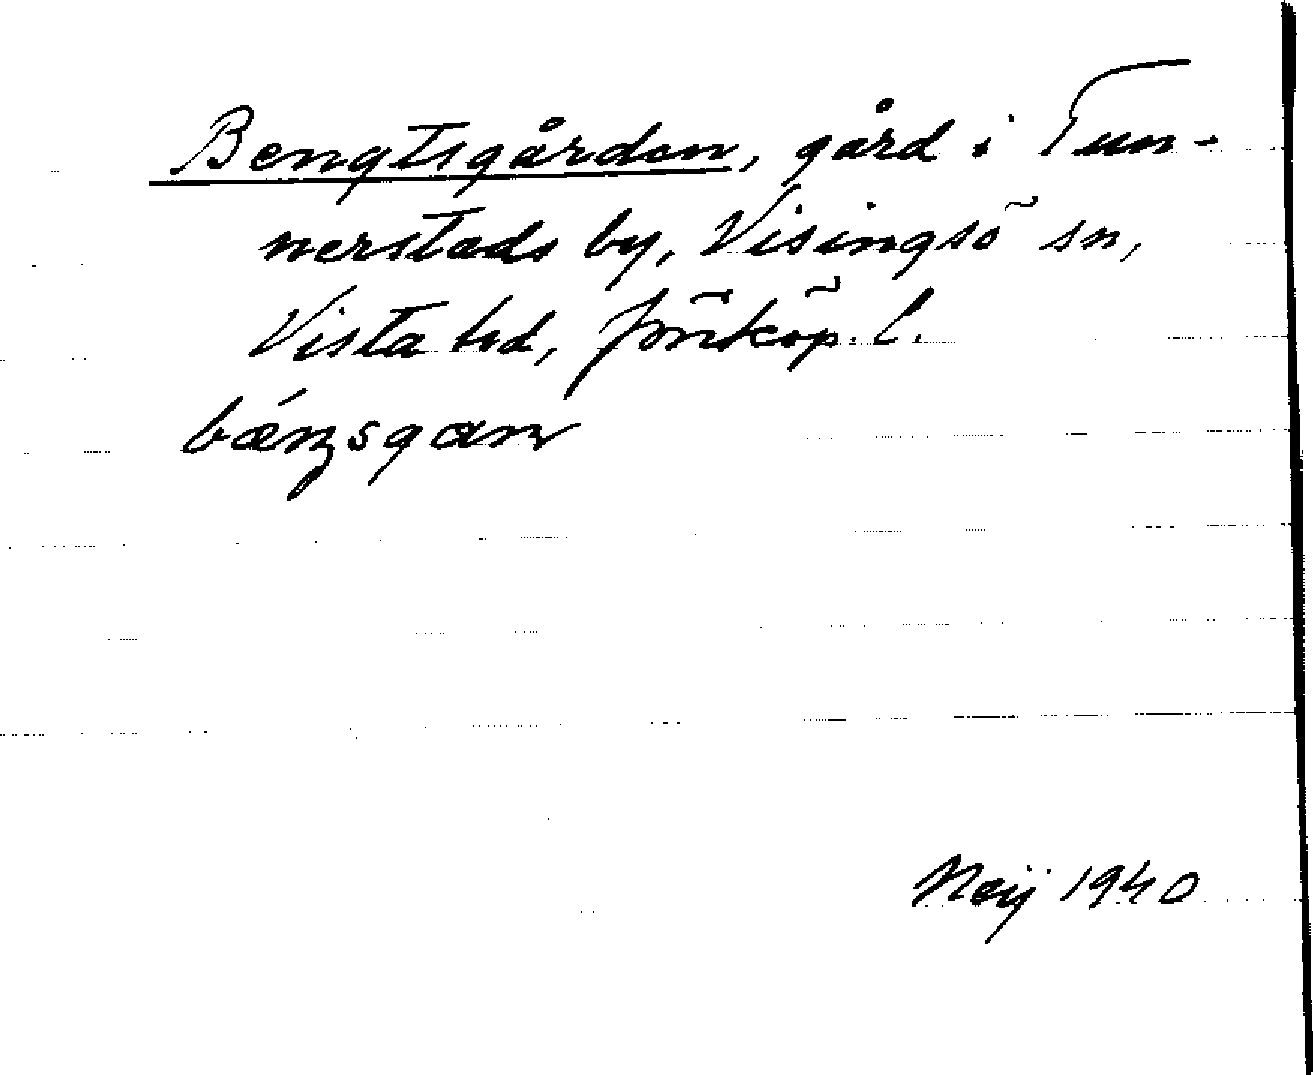 Bengtsgården, gård i Tun-
nerstads by, Visingsö sn,
Vista hd, Jönköp. l.
bǽnᵹsgan
Neij 1940